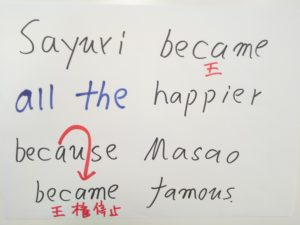 Sayuri became
王
all the happier
because Masao
became famous.
王権停止